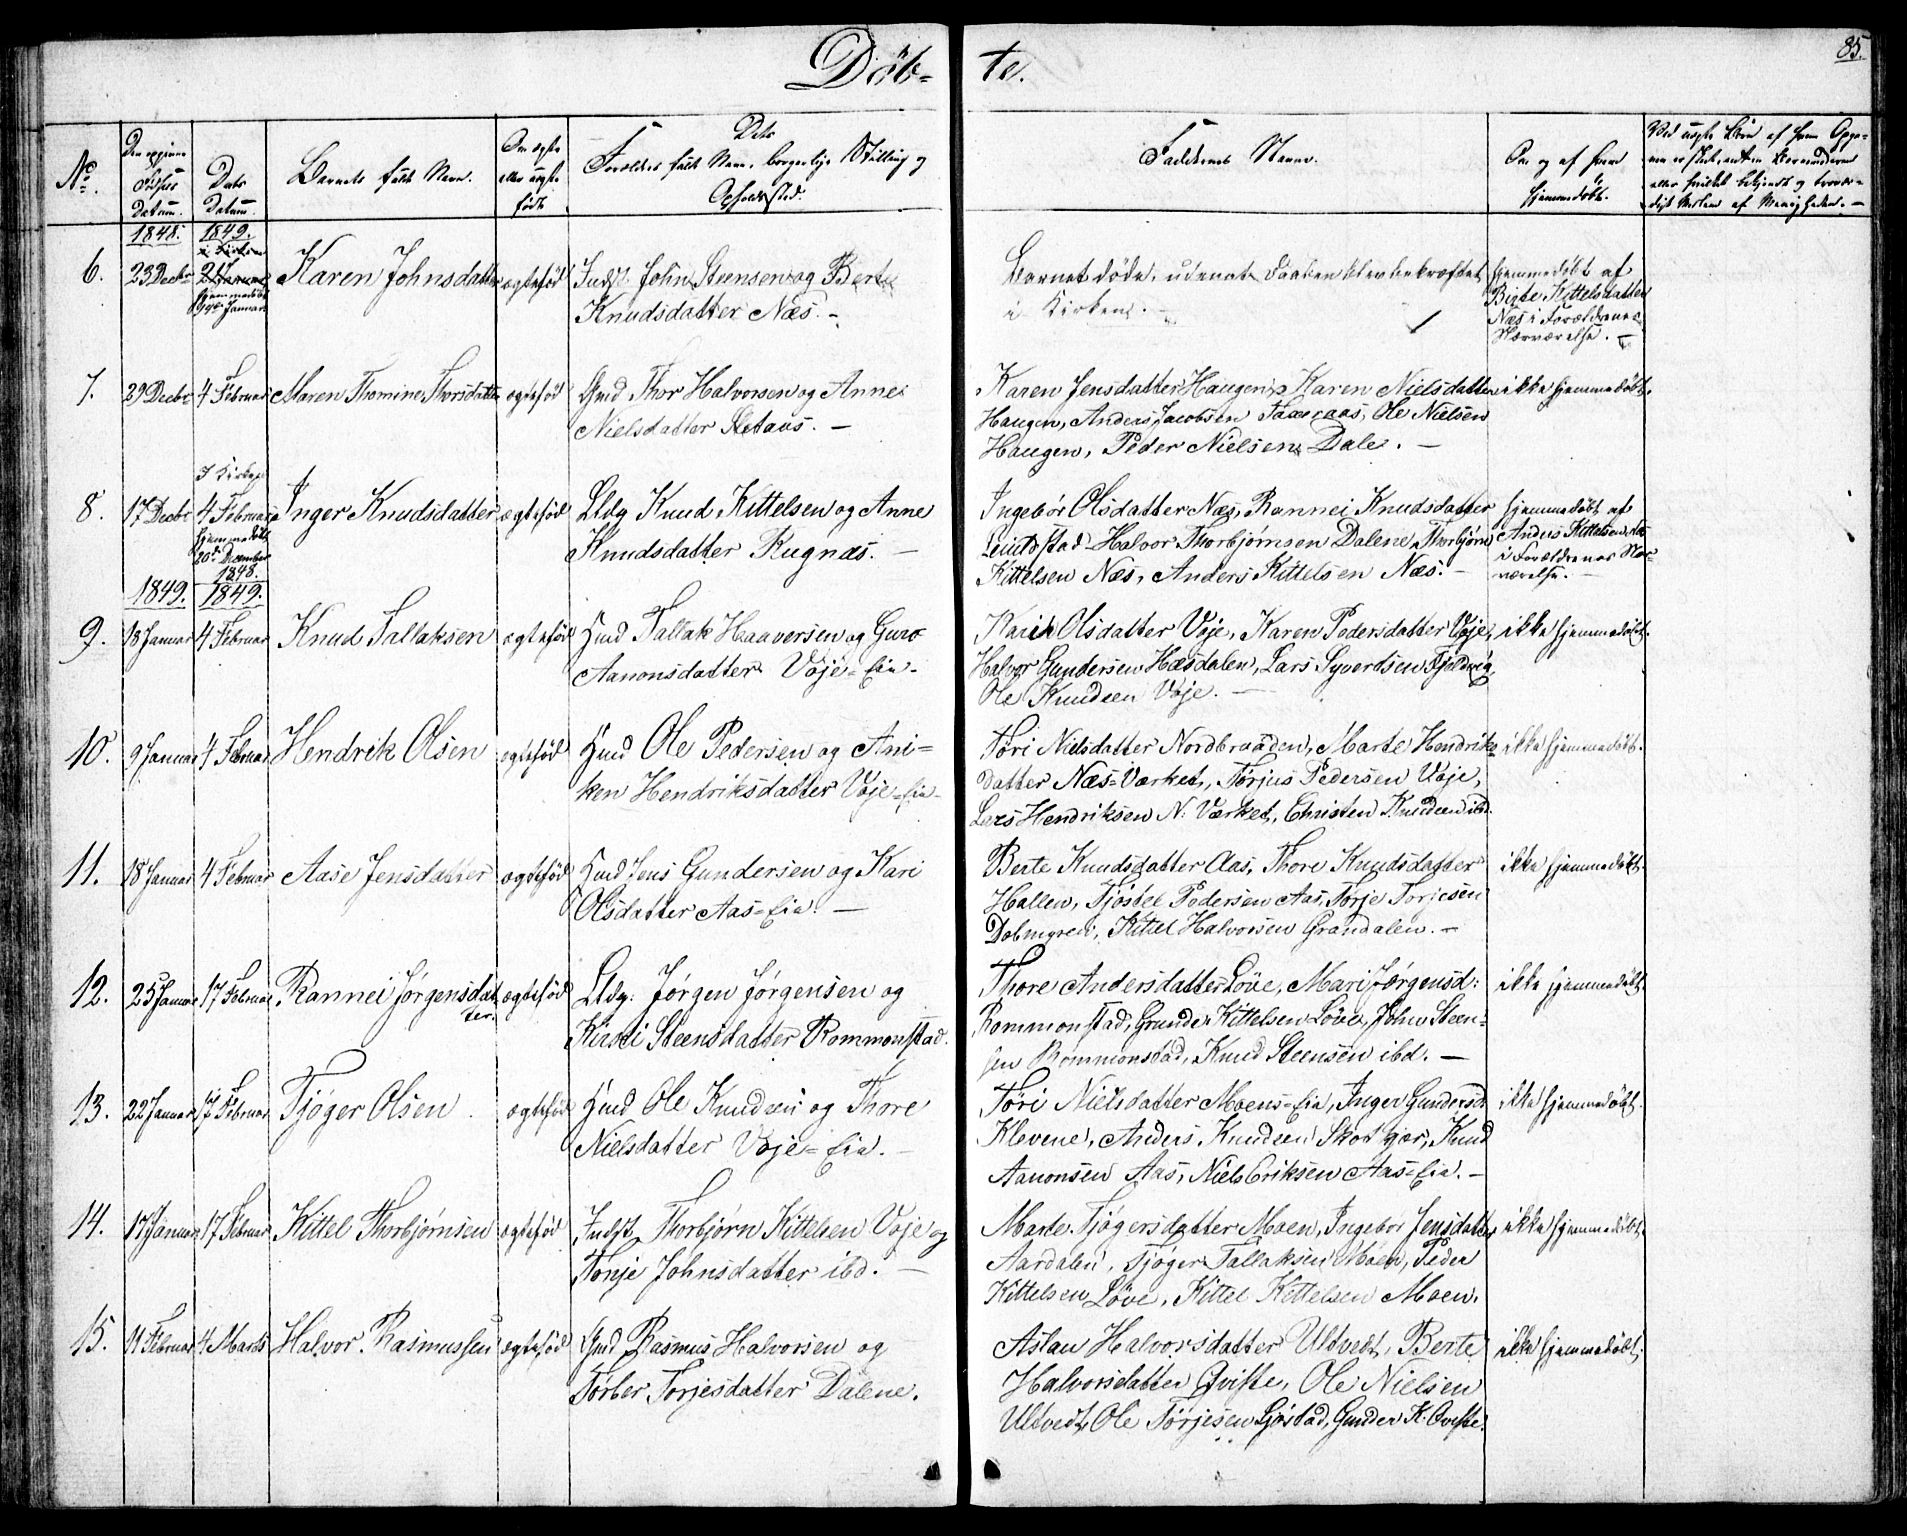 Döb-
te.
85.
No.
Den opgivne Fødsels Datum.
Dato Datum.
Barnets fulde Navn.
Om ægte eller uægte født.
Dets
Forældres fulde Navn, borgerlige Stilling og
Opholdssted.
Faddernes Navne.
Om og af hvem hjemmedøbt.
1848. 1849.
6. 23 Decbr Karen Johnsdatter ægtefød
hjemmedøbt Januar
Indst. John Steensen og Berte
Knudsdatter Næs. -
Barnet døde, udenat Daaben blev bekræftet
i Kirken. -
hjemmedøbt af
Birte Kittelsdatter
Næs i Forældrenes
Nærværelse. -
7. 29 Decbr 4 Februar Maren Thomine Thorsdatter ægtefød
Gmd Thor Halvorsen og Anne
Nielsdatter -
Karen Jensdatter Haugen, Karen Nielsdatter
Haugen, Anders Jacobsen Ole Nielsen
Haugen, Peder Nielsen Dale. -
ikke hjemmedøbt.
I Kirken
8. 17 Decbr 4 Februar Inger Knudsdatter ægtefød
hjemmedøbt
20de December
1848.
Lldg Knud Kittelsen og Anne
Knudsdatter Rugnæs. -
Ingebør Olsdatter Næs, Rannei Knudsdatter
Halvor Thorbjørnsen Dalene, Thorbjørn
Kittelsen Næs, Anders Kittelsen Næs. -
hjemmedøbt af
Anders Kittelsen Næs
i Forældrenes Nær-
værelse. -
1849. 1849.
9. 18 Januar 4 Februar Knud Tallaksen ægtefød
Hmd Tallak Haaversen og Guro
Aanonsdatter Voje-Eie.
Kari Olsdatter Voje, Karen Pedersdatter Voje,
Halvor Gundersen Hæsdalen, Lars Syverdsen Fjeldvig,
Ole Knudsen Voje. -
ikke hjemmedøbt.
10. 9 Januar 4 Februar Hendrik Olsen ægtefød
Hmd Ole Pedersen og Ani-
ken Hendriksdatter Voje-Eie
Töri Nielsdatter Nordbraaden, Marte Hendriks-
datter Næs-Værket, Törjus Pedersen Voje,
Lars Hendriksen N: Værket, Christen Knudsen ibd.
ikke hjemmedøbt.
11. 18 Januar 4 Februar Aase Jensdatter ægtefød
Hmd Jens Gundersen og Kari
Olsdatter Aas-Eie. -
Berte Knudsdatter Aas, Thore Knudsdatter
Hallen, Tjöstel Pedersen Aas, Torje Torjesen
Kittel Halvorsen Grandalen. -
ikke hjemmedøbt.
12. 25 Januar 17 Februar Rannei Jørgensdat-
ter. ægtefød
Lldg: Jørgen Jørgensen og
Kirsti Steensdatter Rommonstad.
Thore Andersdatter Löve, Mari Jørgensd:
Rommonstad, Gunder Kittelsen Löve, John Steen-
sen Rommonstad, Knud Steensen ibd. -
ikke hjemmedøbt.
13. 22 Januar 17 Februar Tjöger Olsen ægtefød
Hmd Ole Knudsen og Thore
Nielsdatter Voje-Eie. -
Töri Nielsdatter Moens-Eie, Inger Gundersd
Klevene, Anders Knudsen Skotkjær, Knud
Aanonsen Aas, Niels Eriksen Aas-Eie. -
ikke hjemmedøbt.
14. 17 Januar 17 Februar Kittel Thorbjørnsen ægtefød
Indst. Thorbjørn Kittelsen Voje og
Tonje Johnsdatter ibd. -
Marte Tjögersdatter Moen, Ingebør Jensdatter
Aardalen, Tjöger Tallaksen Moen, Peder
Kittelsen Löve, Kittel Kittelsen Moen.
ikke hjemmedøbt.
15. 11 Februar 4 Marts Halvor Rasmussen ægtefød
Gmd Rasmus Halvorsen og
Törber Torjesdatter Dalene.
Aslau Halvorsdatter Ultvedt, Berte
Halvorsdatter Qviste, Ole Nielsen
Ultvedt, Ole Törjesen Gunder K. Qviste.
ikke hjemmedøbt.